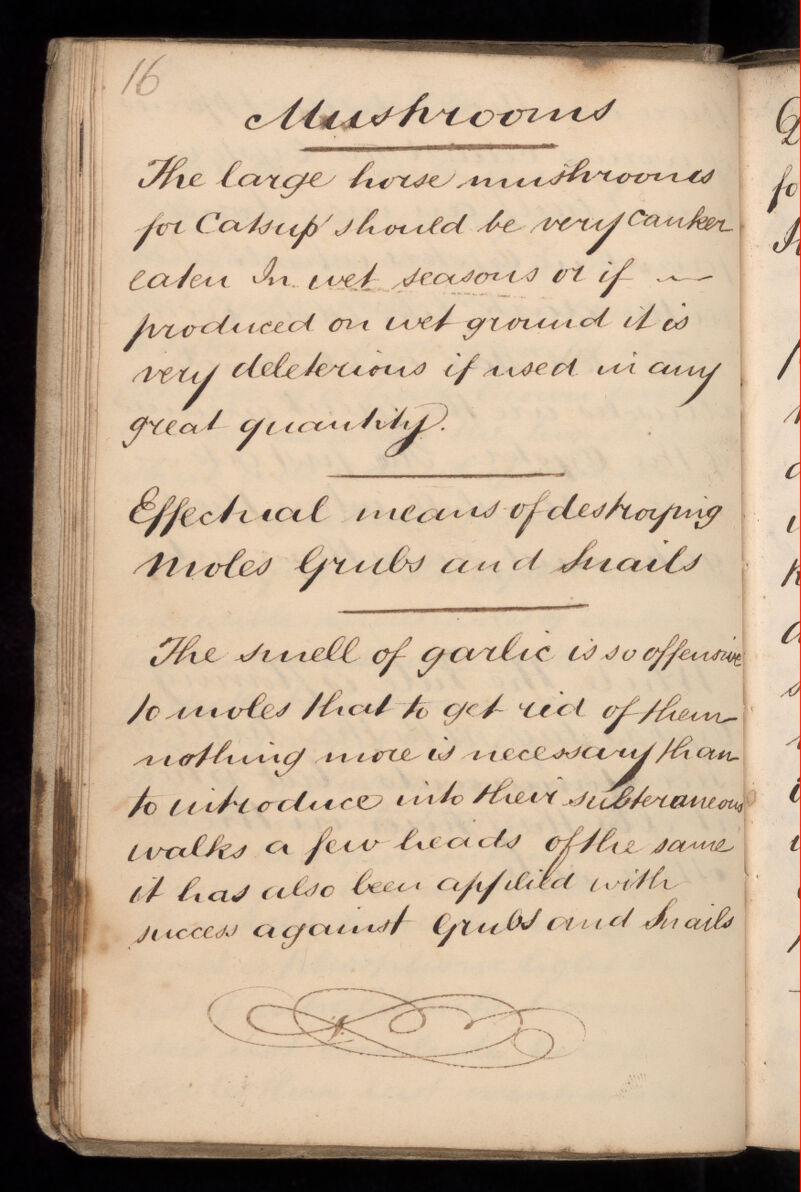 16
Mushrooms
The large horse mushrooms
for Catsup should be very canker
eaten In wet seasons or if
produced on wet ground it is
very deleterious if used in any
great quantity.
Effectual means of destroying
Moles Grubs and Snails
The smell of garlic is so offensive
to moles that to get rid of them
nothing more is necessary than
to introduce into their subteraneous
walks a few heads of the same
it has also been applied with
success against Grubs and Snails